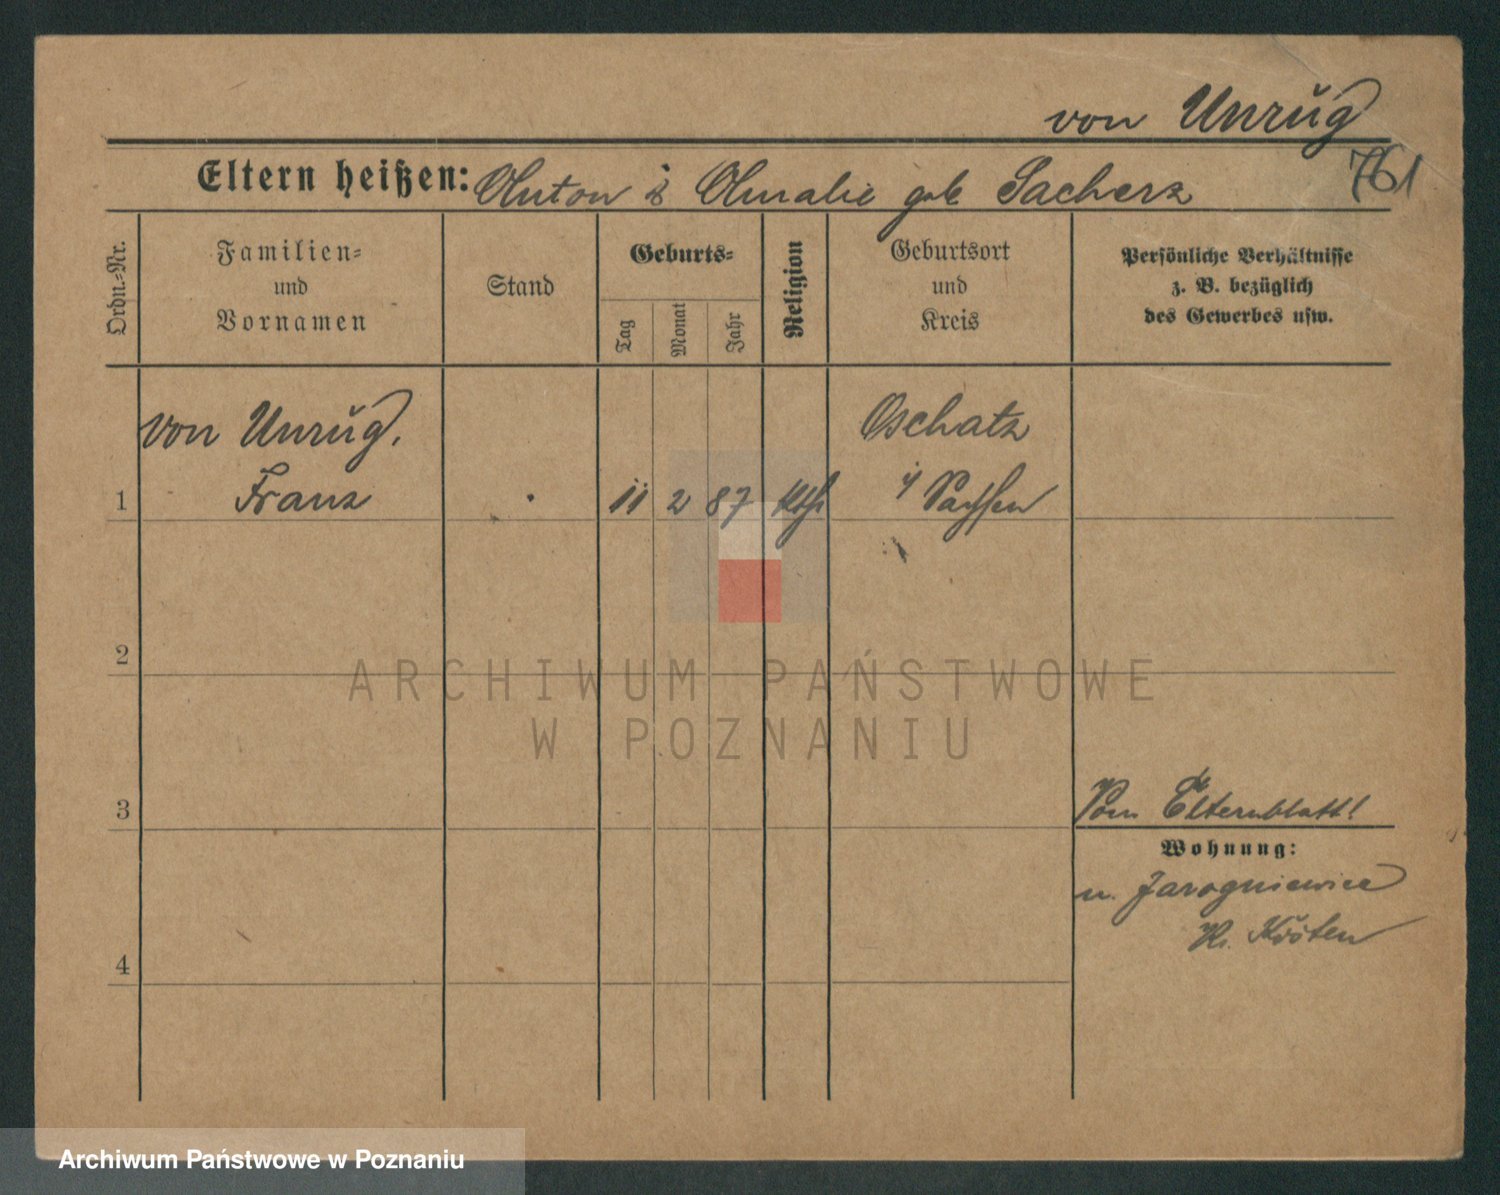 von Unrŭg
761
Eltern heißen: Anton ŭ Amalie geb Sacherz
Ordn.-Nr.
Familien-
und
Vornamen
Stand
Geburts-
Tag
Monat
Jahr
Religion
Geburtsort
und
Kreis
Persönliche Verhältnisse
z. B. bezüglich
des Gewerbes usw.
von Unrŭg.
Franz
1
11 2 87 kth
Oschatz
i/ Sachsen
2
3
4
Vom Elternblatt!
Wohnung:
n. Jarogniewice
Kr. Kosten
ARCHIWUM PAŃSTWOWE
W POZNANIU
Archiwum Państwowe w Poznaniu